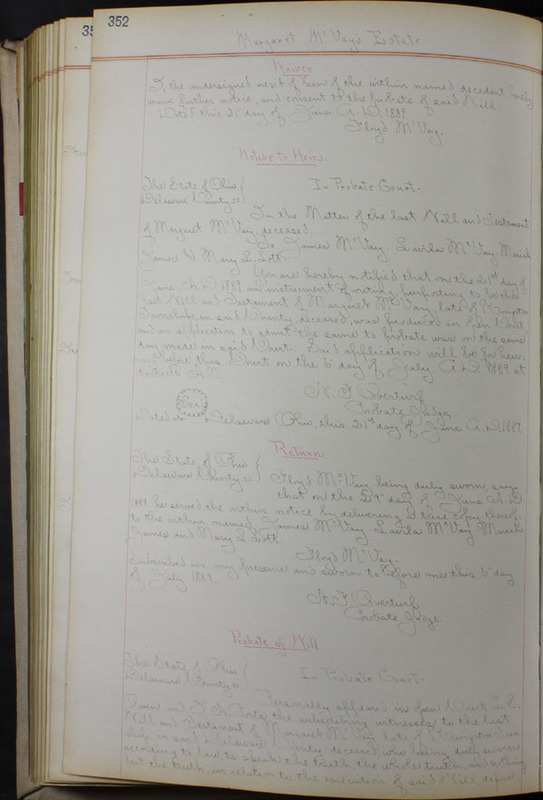 352
35
Margaret McVay's Estate
Waiver
I, the undersigned next of kin of the within named decedent hereby
waive further notice, and consent to the probate of said Will.
Dated this 21 day of June A.D. 1889
Floyd McVay.
Notice to Heirs.
The State of Ohio
Delaware County ss.
In Probate Court.
In the Matter of the last Will and Testament
of Margaret McVay, deceased.
To James McVay. Lavila McVay.
James & Mary L. Lott
You are hereby notified that on the 21st day of
June, A.D. 1889 an instrument of writing, purporting to be the
last Will and Testament of Margaret McVay late of
Township, in said County, deceased, was produced in open Court
and an application to admit the same to probate was on the same
day made in said Court. Said application will be for hear-
ing before this Court on the 6" day of July A.D. 1889 at
o'clock A.M.
N. F. Overturf
Probate Judge.
Seal
Dated at Delaware Ohio, this 21st day of June A.D. 1889.
Return
The State of Ohio
Delaware County ss.
Floyd McVay being duly sworn, says
that on the day of June A.D.
1889. he served the within notice by delivering a true copy thereof
to the within named James McVay Lavila McVay
James and Mary L. Lott
Floyd McVay.
Subscribed in my presence and sworn to before me this 6" day
of July 1889.
N. F. Overturf
Probate Judge.
Probate of Will
The State of Ohio
Delaware County ss
In Probate Court.
Personally appeared in open Court
and the subscribing witnesses to the last
Will and Testament of Margaret McVay late of Town-
ship, in said Delaware County, deceased, who being duly sworn
according to law to speak the truth, the whole truth, and nothing
but the truth, in relation to the execution of said Will, depose